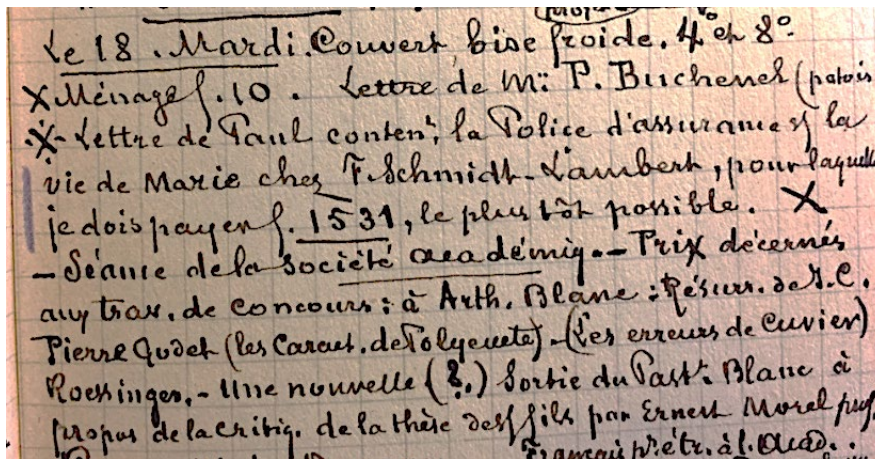 Le 18. Mardi. Couvert bise froide. 4° et 8°.
X Ménage f. 10. Lettre de Mr P. Buchenel (patois
X - Lettre de Paul conten. la Police d'assurance s/ la
vie de Marie chez F. Schmidt-Lambert, pour laquelle
je dois payer f. 1531, le plus tôt possible. X
- Séance de la société académiq. - Prix décernés
aux trav. de concours : à Arth. Blanc : Résurr. de J.C.
Pierre Godet (les Caract. de Polyeucte) - (Les erreurs de Cuvier)
Roessinger. - Une nouvelle (?.) Sortie du Past. Blanc à
propos de la critiq. de la thèse de s/ fils par Ernest Morel prof.
Français à l. Acad.